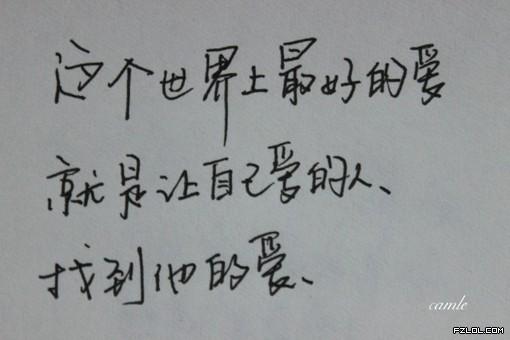 这个世界上最好的爱
就是让自己爱的人、
找到他的爱、
camle
FZLOL.COM